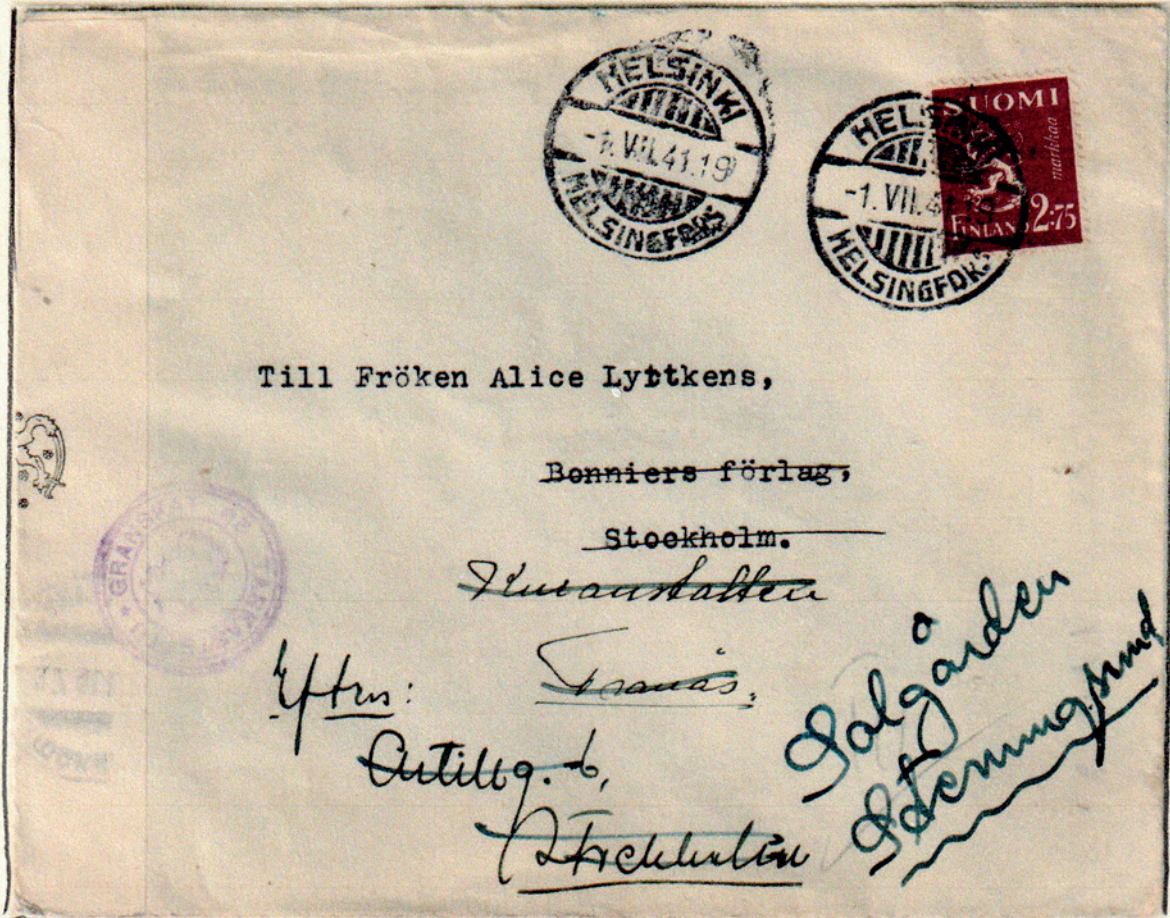 HELSINKI
-1.VII.41.19
HELSINGFORS
HELSINKI
-1.VII.41.19
HELSINGFORS
SUOMI
markkaa
FINLAND 2:75
Till Fröken Alice Lyttkens,
Bonniers förlag,
Stockholm.
Kuranstalten
Tranås.
Eftrs:
Artillg. 6,
Stockholm
Solgården
Stenungsund